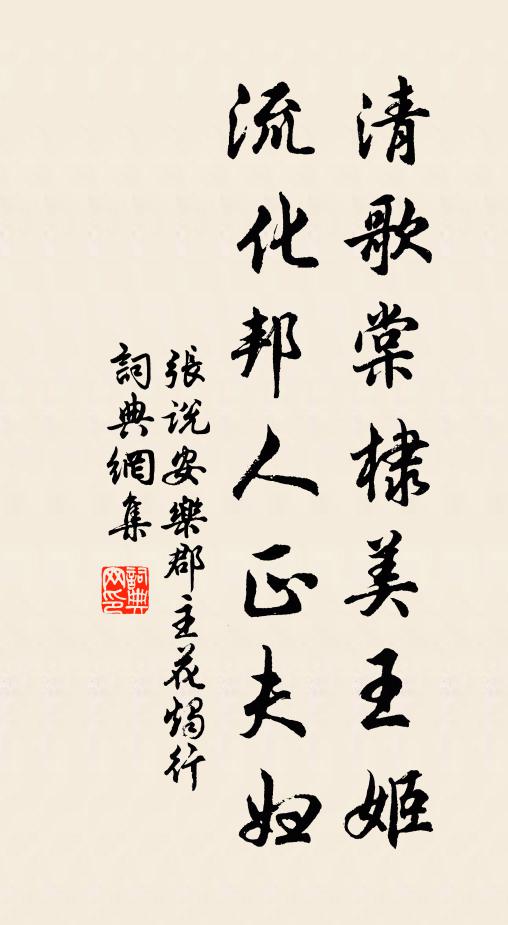 清歌棠棣美王姬
流化邦人正夫妇
張說安樂郡主花燭行
詞典網集
詞典
网印